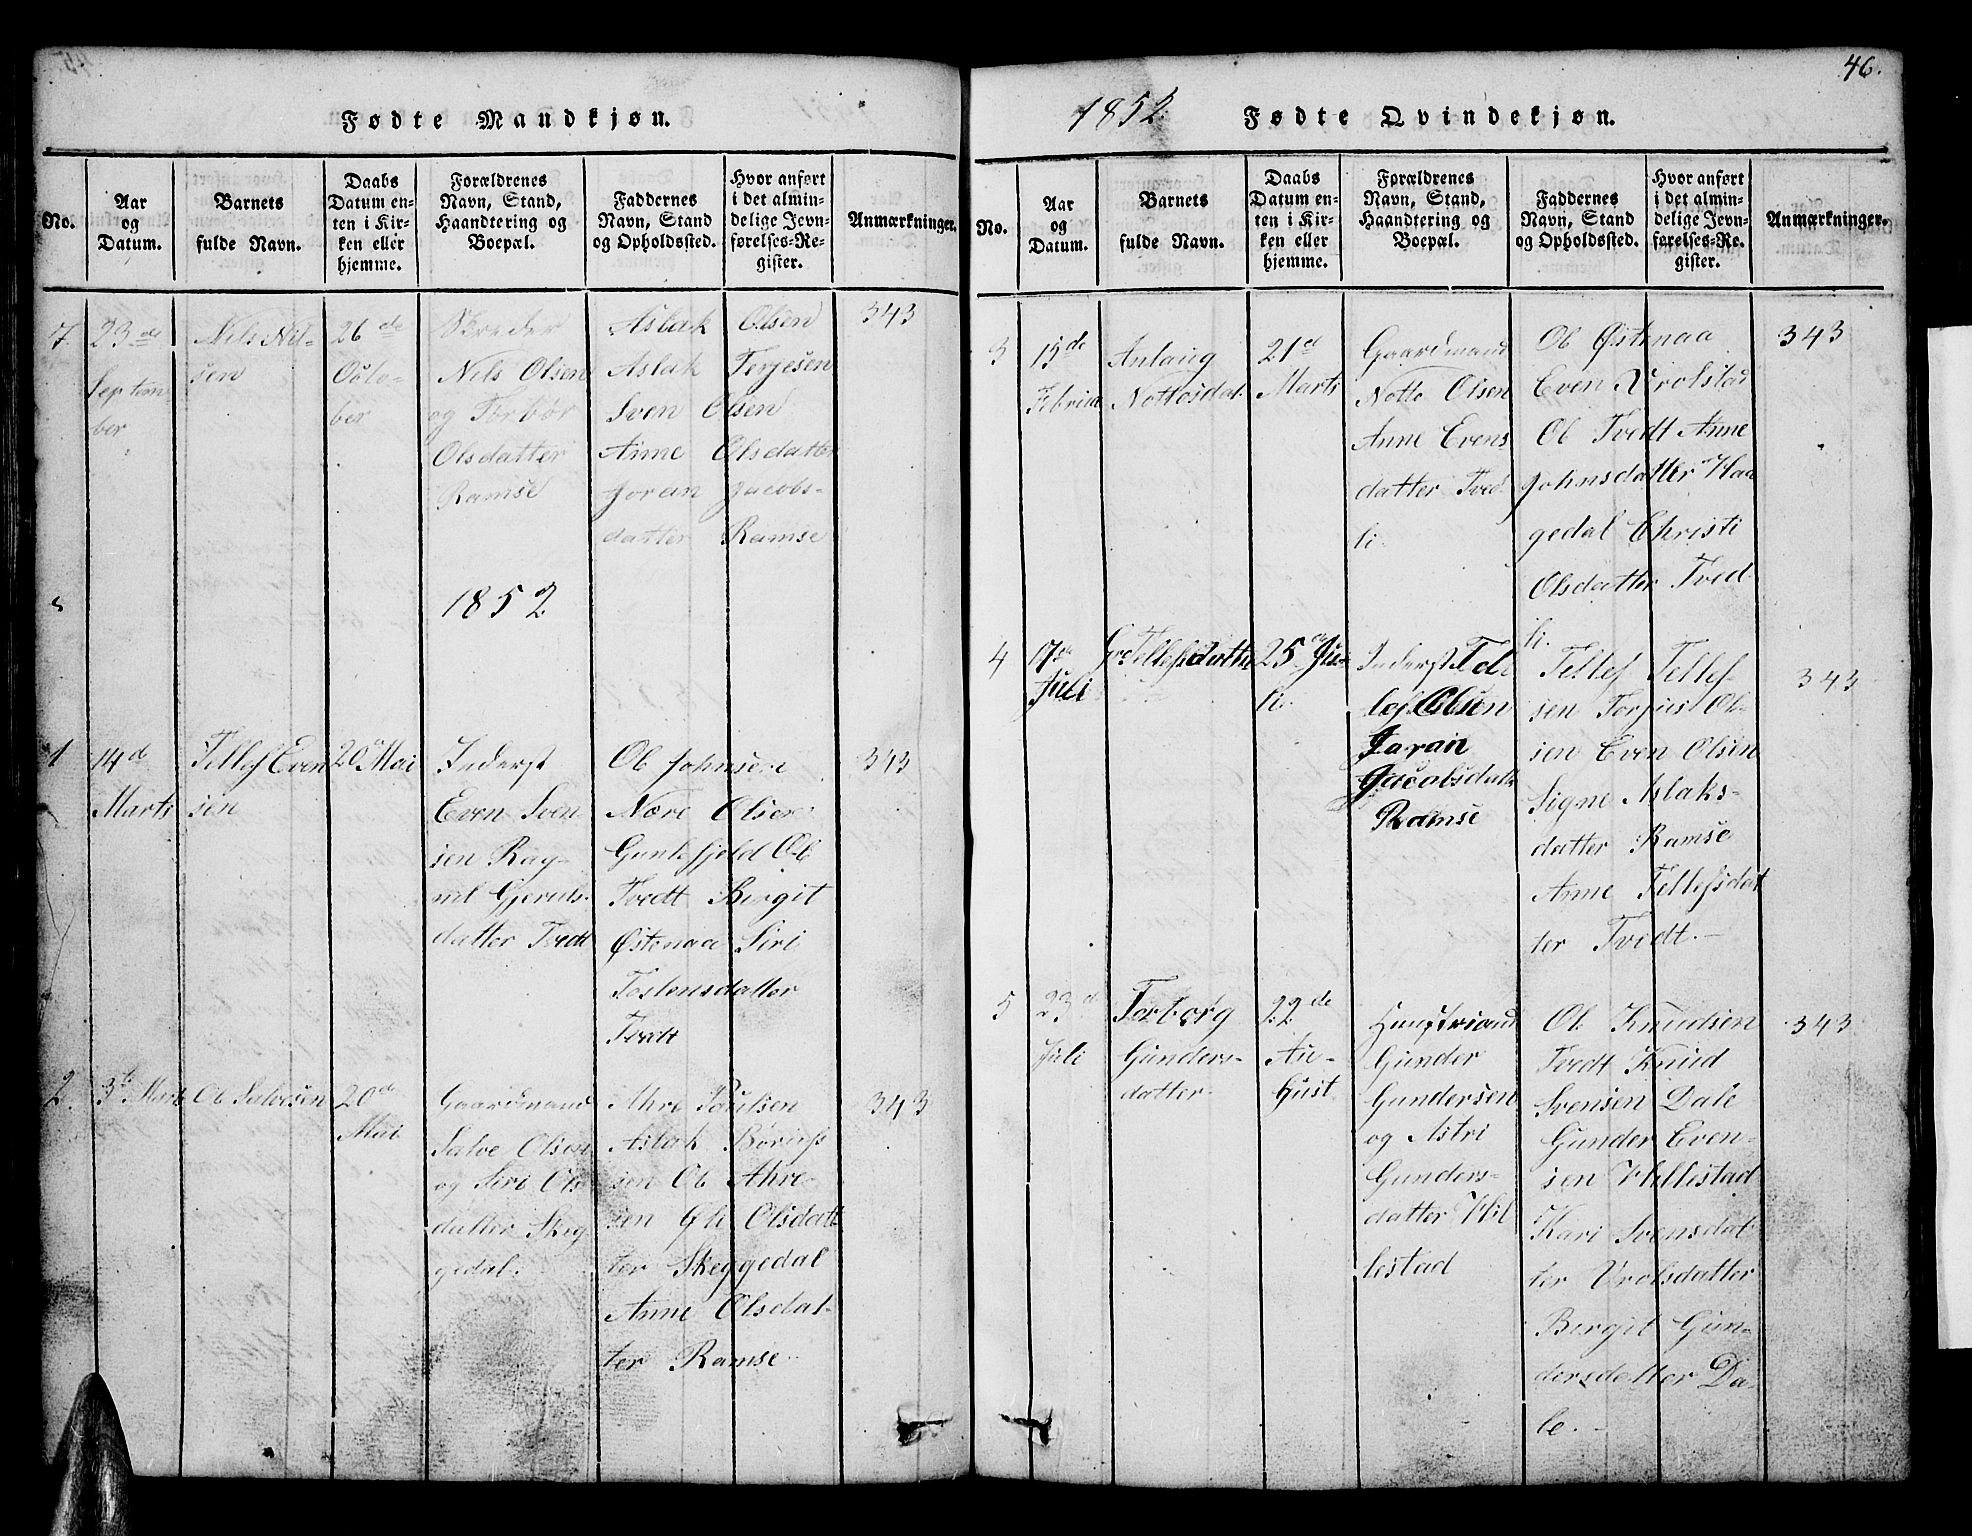 46.
Fødte Mandkjøn.
No.
Aar
og
Datum.
Barnets
fulde Navn.
Daabs
Datum en-
ten i Kir-
ken eller
hjemme.
Forældrenes
Navn, Stand,
Haandtering og
Boepæl.
Faddernes
Navn, Stand
og Opholdssted.
Hvor anført
i det almin-
delige Jevn-
førelses-Re-
gister.
Anmærkninger.
7.
23de
Septem
ber
Nils Nil-
sen
26de
Octo-
ber
Nils Olsen
og Torbor
Olsdatter
Ramse
Aslak Olsen
Aslak Terjesen
Sven Olsen
Anne Olsdatter
Joran Jacobs-
datter Ramse
343
1852
1
14d
Marts
Tellef Even
sen
20 Mai
Inderst
Even Sven
sen Rag-
nil Gjeruls-
datter Tvedt
Ob Johnsen
Nore Olsen
Guntefjeld Ob
Tvedt Birgit
Østenaa Siri
Tostensdatter
Tvedt
343
2.
3te Marts
Ob Salvesen
20de
Mai
Gaardmand
Salve Olsen
og Siri Ols
datter Skeg
gedal.
Ahre Paulsen
Aslak Børufs
sen Ob Ahre-
sen Gli Olsdatt
ter Skeggedal
Anne Olsdat-
ter Ramse
343
1852.
Fødte Qvindekjøn.
No.
Aar
og
Datum.
Barnets
fulde Navn.
Daabs
Datum en-
ten i Kir-
ken eller
hjemme.
Forældrenes
Navn, Stand,
Haandtering og
Boepæl.
Faddernes
Navn, Stand
og Opholdssted.
Hvor anført
i det almin-
delige Jevn-
førelses-Re-
gister.
Anmærkninger.
3
15de
Februa
Anlaug
Nottosdat.
21d
Marts
Gaardmand
Notto Olsen
Anne Evens
datter Tved
li.
Ob Østenaa
Even Vrolstad
Ob Tvedt Anne
Johnsdatter Haa
gedal Christi
Olsdatter Tved
li.
343
4
17de
Juli
Gro Tellefsdatter
25de Ju-
li.
Inderst Tel
lef Olsen
Joran
Jacobsdatt
Ramse
Tellef Tellef-
sen Torjus Ol-
sen Even Olsen
Signe Aslaks-
datter Ramse
Anne Tellefsdat
ter Tvedt.
343
5
23d
Juli
Torborg
Gunders-
datter.
22de
Au-
gust.
Huusmand
Gunder
Gundersen
og Astri
Gunders-
datter Hil
lestad
Ob Knudsen
Tvedt Knud
Svensen Dale
Gunder Even-
sen Hillestad
Kari Svensdat
ter Vrolsdatter
Birgit Gun-
dersdatter Da-
le.
343